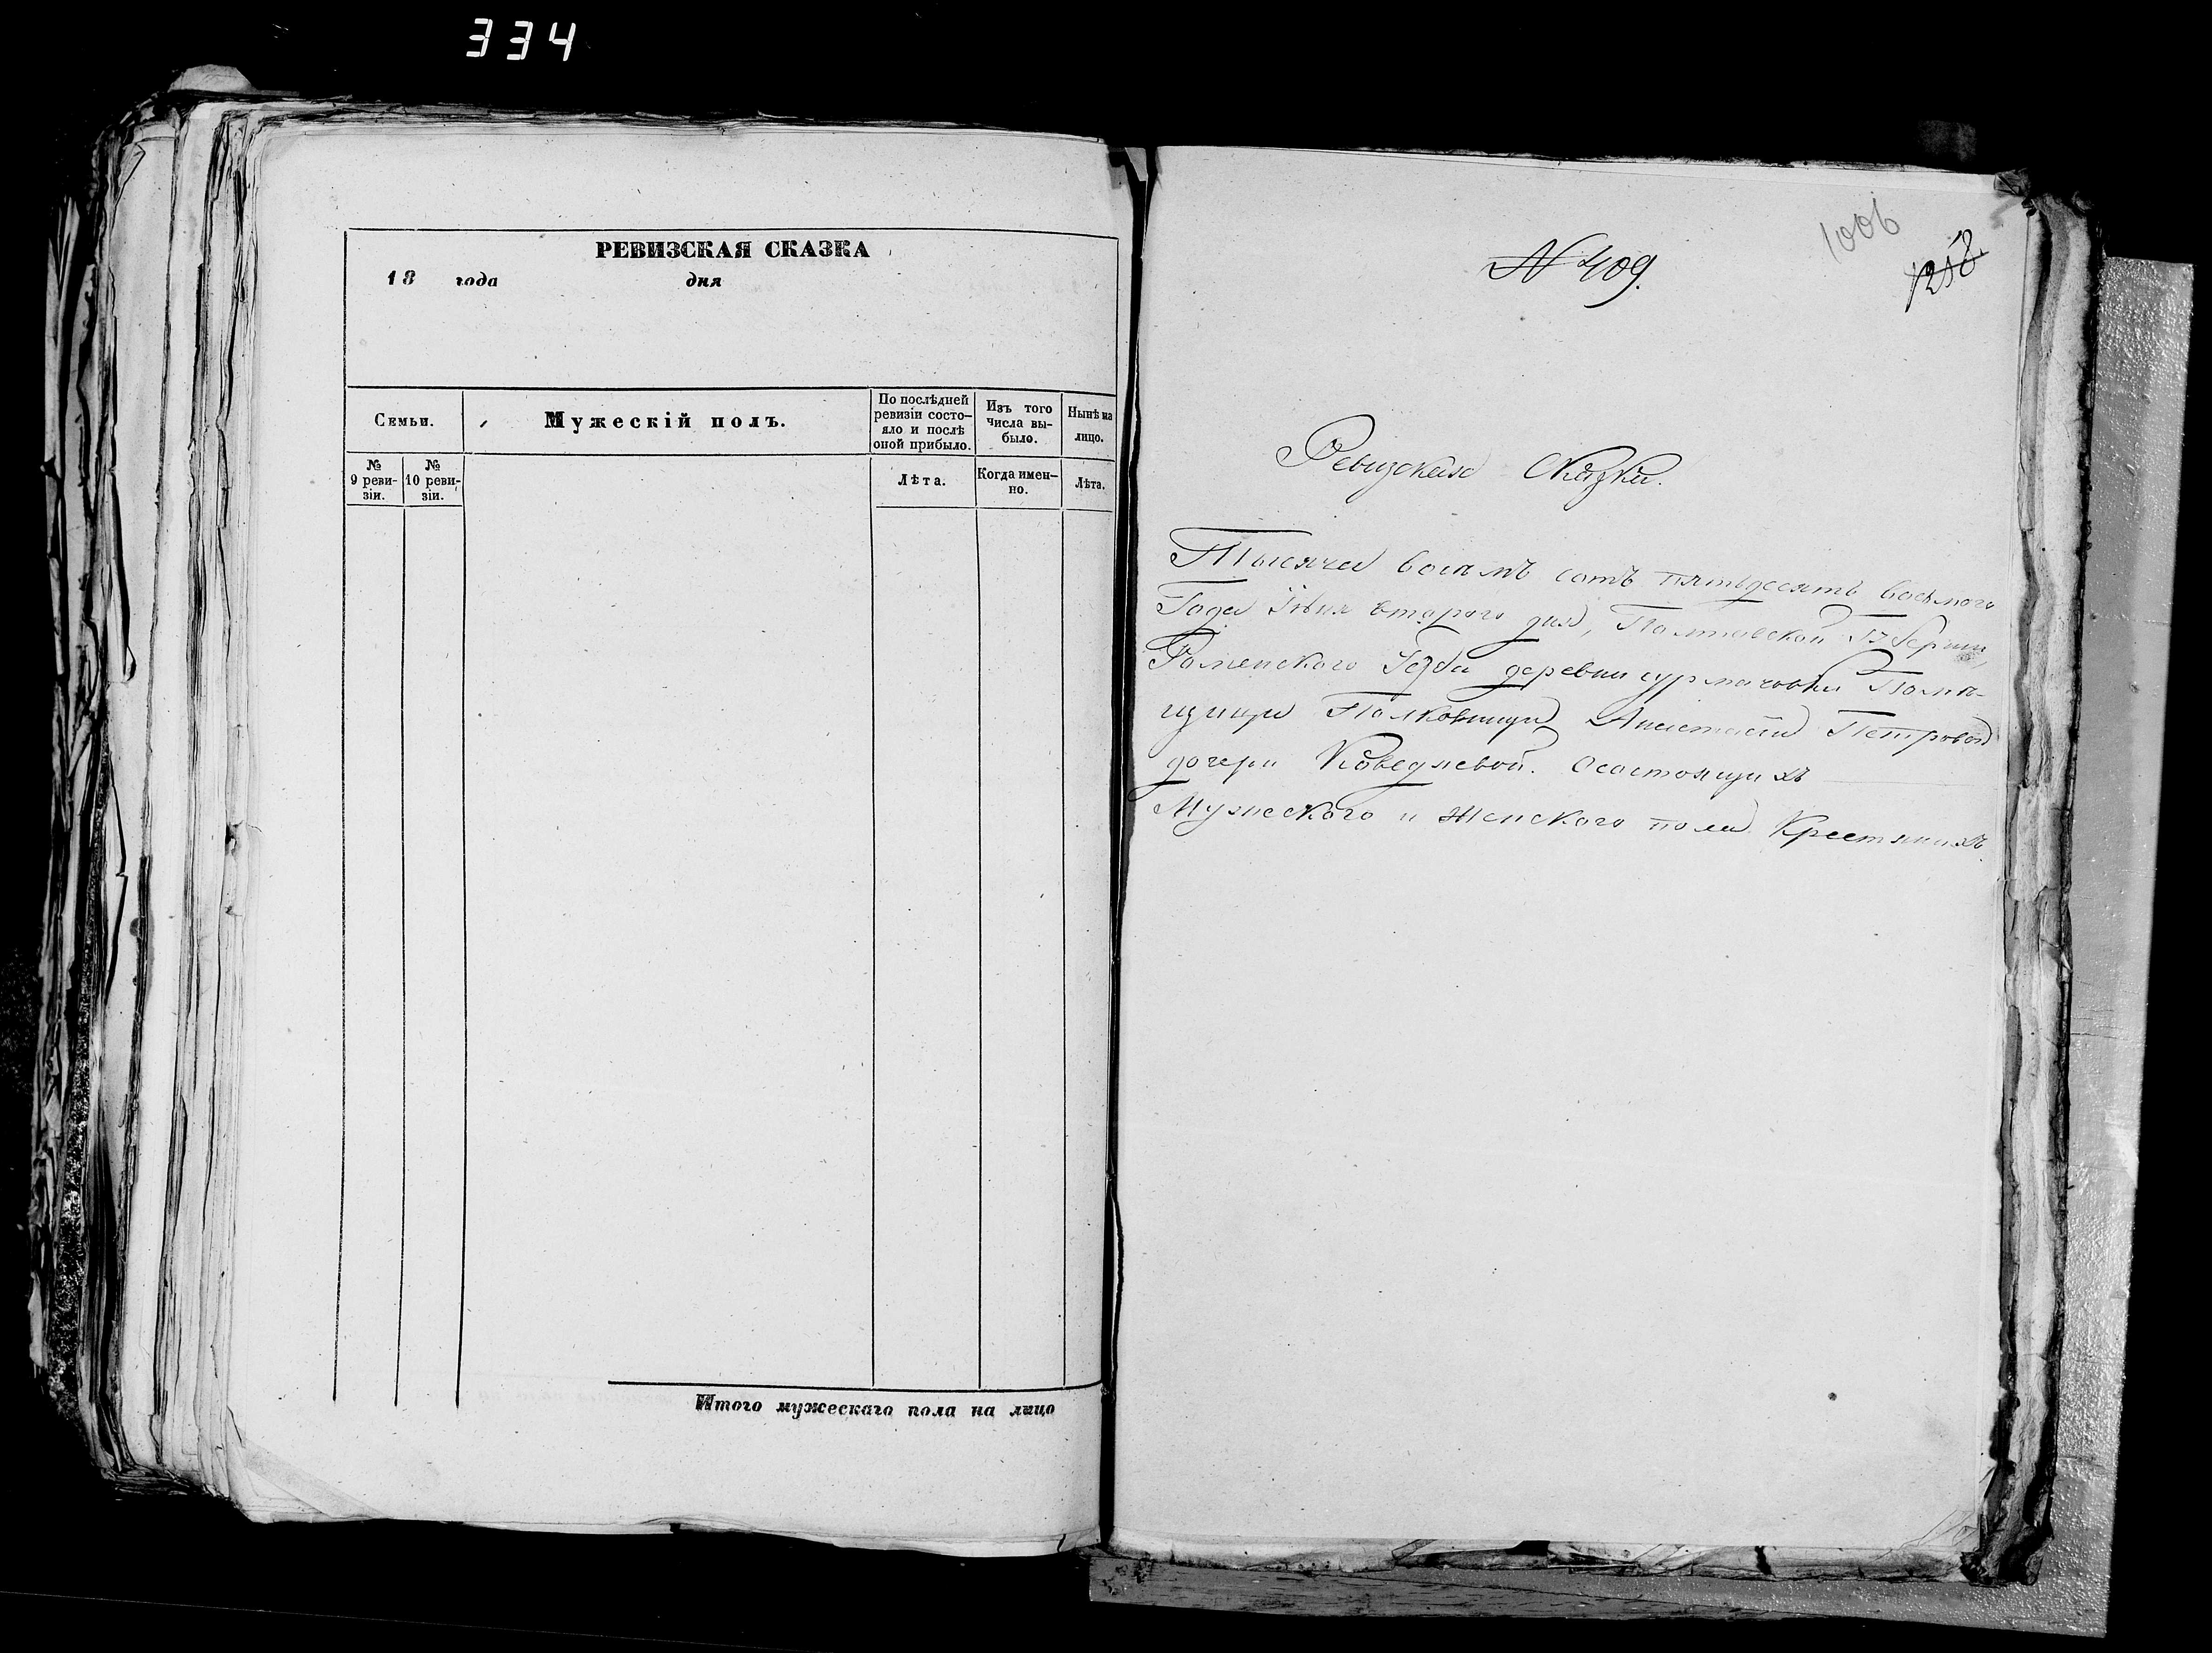 334
РЕВИЗСКАЯ СКАЗКА
18 года дня
Семьи.
Мужескій полъ.
По послѣдней
ревизіи состо-
яло и послѣ
оной прибыло.
Изъ того
числа вы-
было.
Нынѣ на
лицо.
№
9 реви-
зіи.
№
10 реви-
зіи.
Лѣта.
Когда имен-
но.
Лѣта.
Итого мужескаго пола на лицо
1006
1218
№ 409.
Ревизская Сказка.
Тысяча восемъ сотъ пятьдесятъ восьмого
Года Іюня второго дня, Полтавской Губерніи,
Роменского уезда деревни сурмачовки Поме-
щици Полковници Анастасіи Петровой
дочери Коведяевой. О состоящихъ
Мужеского и Женского пола Крестянахъ.